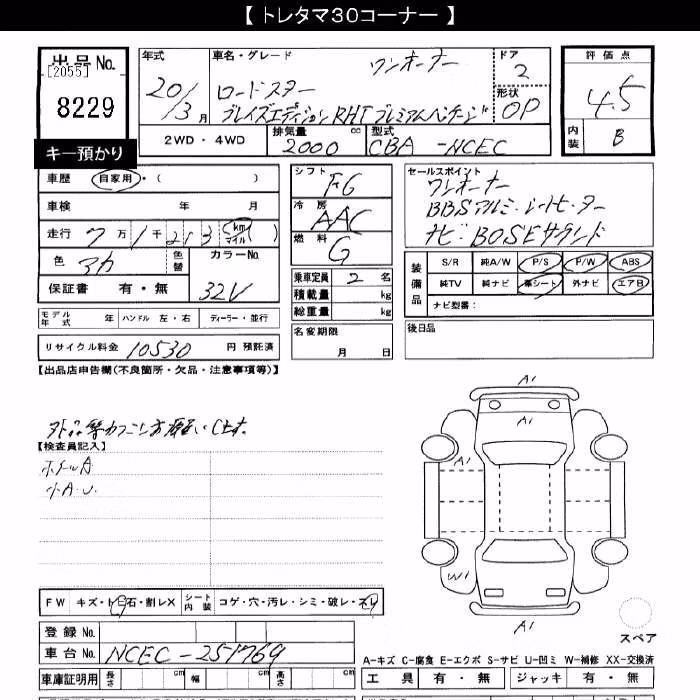 【 トレタマ30コーナー 】
出品No.
[2055]
8229
キー預かり
年式
20/3月
車名・グレード
ワンオーナー
ロードスター
ブレイズエディションRHTプレミアムパッケージ
ドア
2
形状
OP
2WD・4WD
排気量
2000
cc
型式
CBA-NCEC
評価点
4.5
内装
B
車歴
自家用・( )
車検 年 月
走行 7万1千213(km マイル)
色
アカ
色替
カラーNo.
32V
保証書 有・無
モデル年式 年
ハンドル 左・右
ディーラー・並行
リサイクル料金 10530 円 預託済
シフト
F6
冷房
AAC
燃料
G
乗車定員 2 名
積載量 kg
総重量 kg
名変期限
月 日
セールスポイント
ワンオーナー
BBSアルミ・シートヒーター
ナビ・BOSEサウンド
装備品
S/R 純A/W P/S P/W ABS
純TV 純ナビ 革シート 外ナビ エアB
ナビ型番:
後日品
【出品店申告欄(不良箇所・欠品・注意事項等)】
【検査員記入】
ホイールA
小A.U.
A1
A1
A1
W1
A1
スペア
FW キズ・トビ石・割レX
シート内装 コゲ・穴・汚レ・シミ・破レ・スレ
登録No.
車台No. NCEC-251769
車庫証明用 長さ cm 幅 cm 高さ cm
A-キズ C-腐食 E-エクボ S-サビ U-凹ミ W-補修 XX-交換済
工具 有・無 ジャッキ 有・無